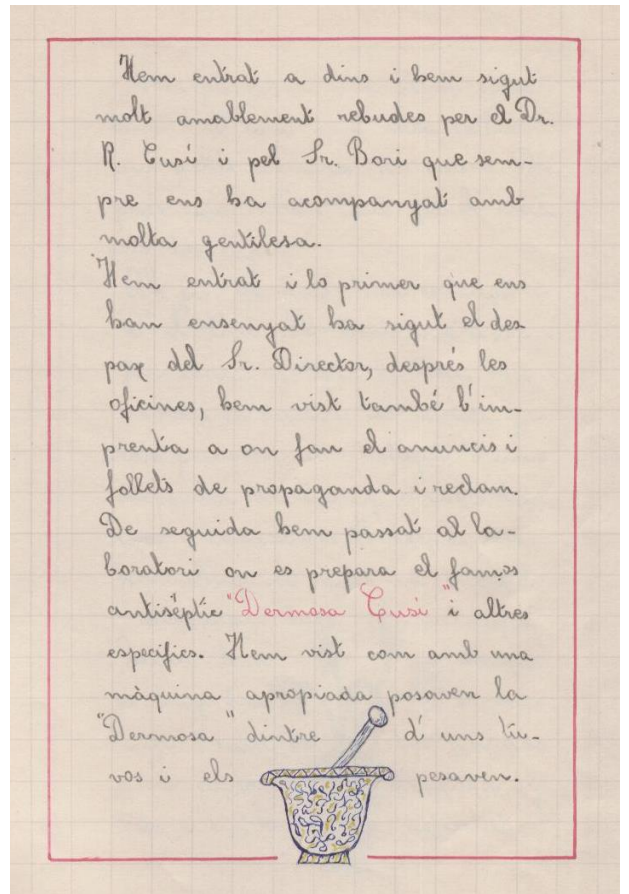 Hem entrat a dins i hem sigut
molt amablement rebudes per el Dr.
R. Cusí i pel Sr. Bori que sem-
pre ens ha acompanyat amb
molta gentilesa.
Hem entrat i lo primer que ens
han ensenyat ha sigut el des
pax del Sr. Director, després les
oficines, hem vist també l'im-
prenta a on fan el anuncis i
follets de propaganda i reclam.
De seguida hem passat al la-
boratori on es prepara el famos
antisèptic "Dermosa Cusí" i altres
especifics. Hem vist com amb una
màquina apropiada posaven la
"Dermosa" dintre d' uns tu-
vos i els pesaven.